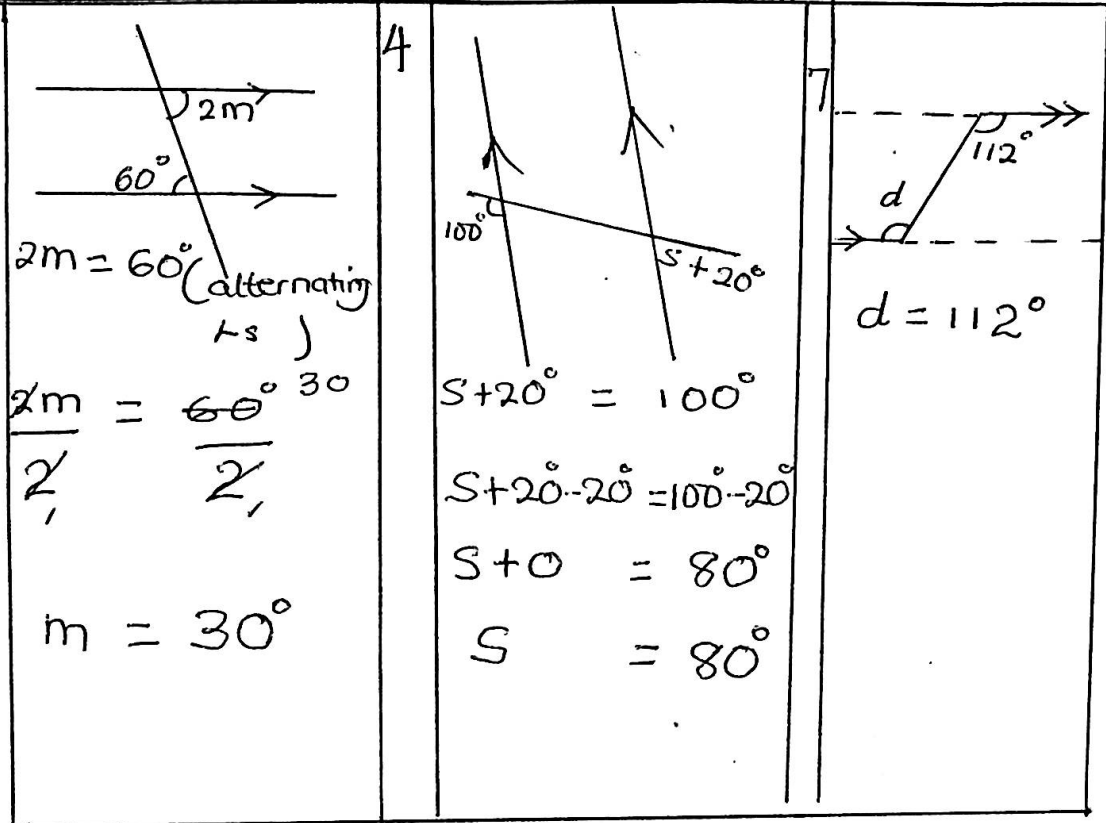 2m
60°
2m = 60° (alternating
∠s )
2m/2 = 60°/2 30
m = 30°
4
100°
S+20°
S+20° = 100°
S+20°-20° = 100°-20°
S+0 = 80°
S = 80°
7
112°
d
d = 112°